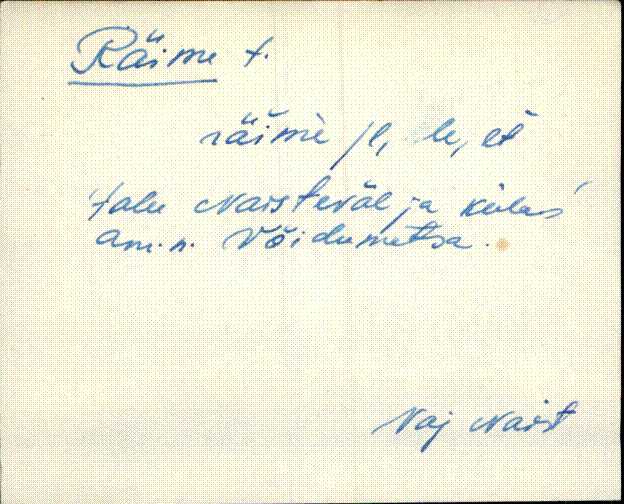 Räime t.
räimè /l, le, et
talu Naistevälja külas
am. n. Võidumetsa.
Vaj Naist